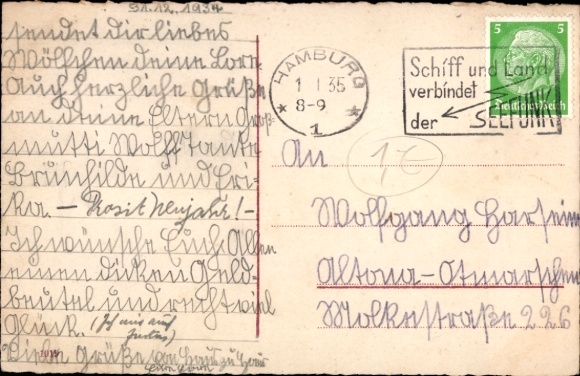 31.12.1934
sendet dir liebes
Wölfchen deine Lore
Auch herzliche Grüße
an deine Eltern Groß-
mutti Wolff Tante
Brunhilde und Eri-
ka. — Prosit Neujahr! —
Ich wünsche Euch Allen
einen dicken Geld-
beutel und recht viel
Glück. (Ich uns auch
Liebe Grüße von Haus zu Haus
HAMBURG
1.1.35
8-9
1
Schiff und Land
verbindet
der SEEFUNK
5 5
Deutsches Reich
1€
An
Wolfgang
Altona-Otmarschen
Molkestraße 226